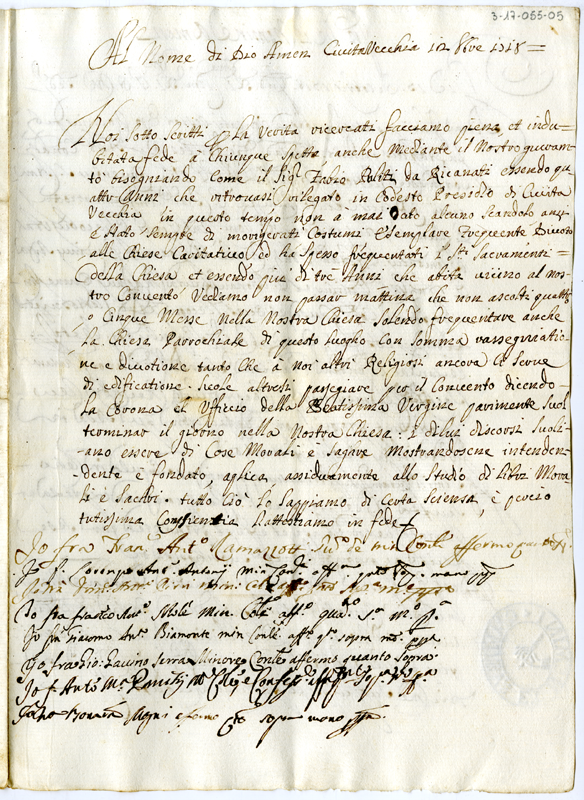 3-17-055-05
Al Nome di Dio Amen CivitaVecchia 12 8bre 1718=
Noi sotto scritti p La Verità ricercati facciamo piena et indu-
bitata fede à Chiunque spetta anche mediante il Nostro giuram-
to bisegniando come il Sig. Fabio Puliti da Ricanati essendo qu
attro Anni che ritrovasi rilegato in Codesto Presidio di Civita
Vecchia in questo tempo non à mai dato alcuno scandalo anzi
è stato sempre di morigerati Costumi Esemplare frequente Divoto
alle Chiese Caritativo ed hà spesso frequentati i Sti Sacramenti=
della Chiesa et essendo più di trè Anni che abita vicino al nos-
tro Convento Vediamo non passar mattina che non ascolti quattro
o Cinque Messe nella Nostra Chiesa Solendo frequentare anche
La Chiesa Parrochiale di questo luogho con somma rassegniatio-
ne e divotione tanto che à noi altri Religiosi ancora Ci serve
di edificatione. Suole altresi passegiare per il Convento dicendo-
La Corona et Ufficio della Beatissima Vergine parimente suol
terminar il giorno nella Nostra Chiesa: i di lui discorsi suoli-
ano essere di Cose Morali e Sagre Mostrandosene intenden-
dente e fondato, aplica assiduamente allo Studio di Libri Mora
li è Sacri. tutto Ciò Lo Sappiamo di Certa Scienza, è percio
tutissima Conscientia Rattestiamo in fede
Io fra Fran. Ant. Min Conle affermo
Io f. Lorenzo Ant. Antonij Min Conle aff
Io fra Franco Ant. Min. Conle affo
Io fra Giacomo Ant. Biamonte min Conle affo qto sopra mo. ppa
Io fra Gio: Serra Minore Conle affermo quanto sopra
Io f. Anto Ma e Confesso
mano ppa